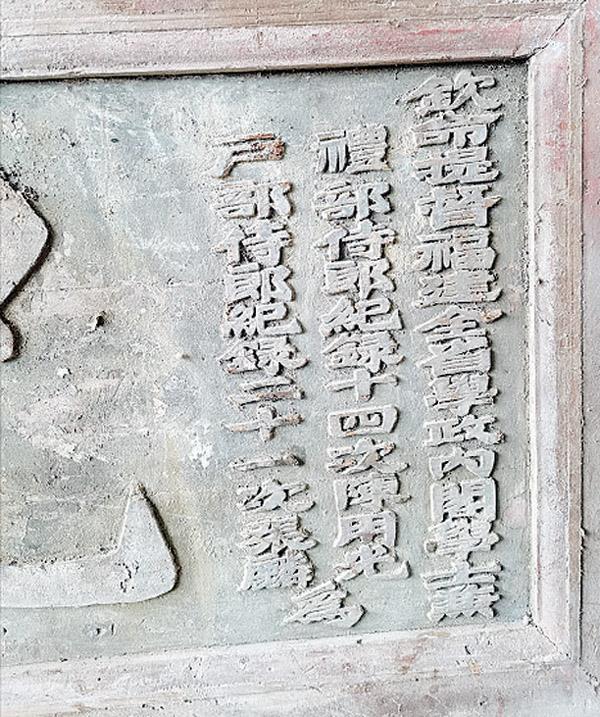 欽命提督福建全省學政內閣學士兼
禮部侍郎紀錄十四次陳用光
戶部侍郎紀錄二十一次張鱗
為